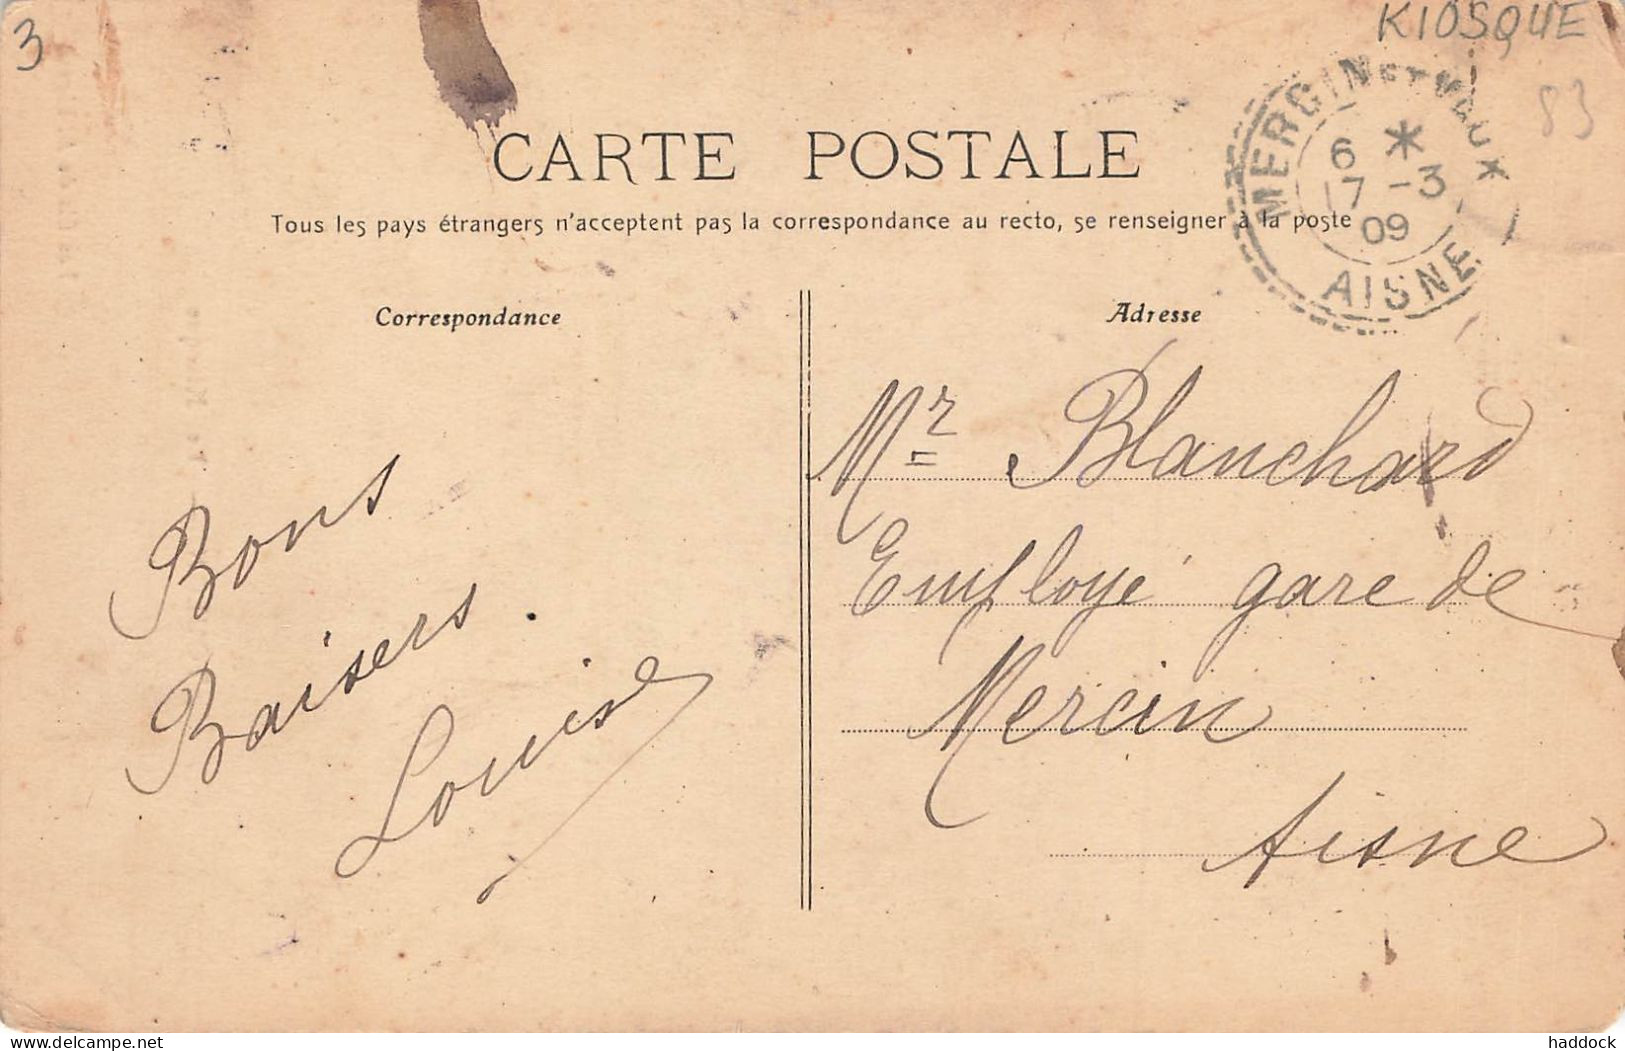 3
KIOSQUE
83
MERCIN ET VAUX
6 *
17 -3
09
AISNE
CARTE POSTALE
Tous les pays étrangers n'acceptent pas la correspondance au recto, se renseigner à la poste
Correspondance
Bons
Baisers.
Louise
Adresse
Mr Blanchard
Employé gare de
Mercin
Aisne
delcampe.net
haddock